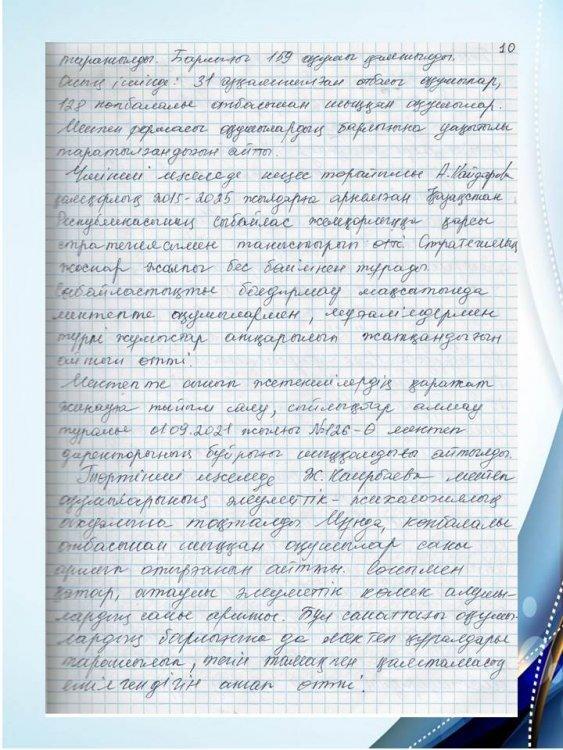 10
таратылды. Барлығы 159 оқушы қамтылды.
Оның ішінде: 31 аз қамтылған отбасы оқушылар,
128 көпбалалы отбасынан шыққан оқушылар.
Мектеп формасы оқушылардың барлығына уақытылы
таратылғандығын айтты.
Үшінші мәселеде кеңес төрайымы А.Найдарова
қалқорлық 2015-2025 жылдарға арналған Қазақстан
Республикасының сыбайлас жемқорлыққа қарсы
стратегиясымен таныстырып өтті. Стратегиялық
жоспар жалпы бес бөлімнен тұрады
Сыбайластықты болдырмау мақсатында
мектепте оқушылармен, мұғалімдермен
түрлі жұмыстар атқарылып жатқандығын
айтып өтті.
Мектепте сынып жетекшілердің қаражат
жинауға тыйым салу, сыйлықтар алмау
туралы 01.09.2021 жылғы №126-Ө мектеп
директорының бұйрығы шыққандығы айтылды.
Төртінші мәселеде Ж.Каирбаева мектеп
оқушыларының әлеуметтік-психологиялық
ахуалына тоқталды. Мұнда, көпбалалы
отбасынан шыққан оқушылар саны
артып отырғанын айтты. Сонымен
қатар, атаулы әлеуметтік көмек алушы-
лардың саны артты. Бұл санаттағы оқушы-
лардың барлығына да мектеп құралдары
таратылып, тегін тамақпен қамтамасыз
етілгендігін атап өтті.